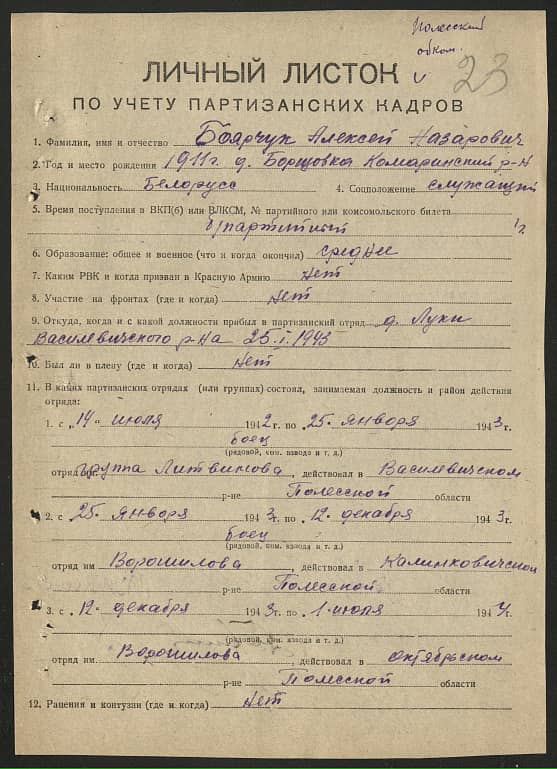 Полесский
обком.
23
ЛИЧНЫЙ ЛИСТОК
ПО УЧЕТУ ПАРТИЗАНСКИХ КАДРОВ
1. Фамилия, имя и отчество Боярчук Алексей Назарович
2. Год и место рождения 1911 г. д. Борщовка Комаринский р-н
3. Национальность Белорусс 4. Соцположение служащий
5. Время поступления в ВКП(б) или ВЛКСМ, № партийного или комсомольского билета
б/партийный
6. Образование: общее и военное (что и когда окончил) среднее
7. Каким РВК и когда призван в Красную Армию нет
8. Участие на фронтах (где и когда) нет
9. Откуда, когда и с какой должности прибыл в партизанский отряд д. Луки
Василевичского р-на 25.I.1943
10. Был ли в плену (где и когда) нет
11. В каких партизанских отрядах (или группах) состоял, занимаемая должность и район действия
отряда:
1. с "14" июля 1942 г. по 25. января 1943 г.
боец
(рядовой, ком. взвода и т. д.)
отряд группа Литвинова, действовал в Василевичском
р-не Полесской области
2. с 25. января 1943 г. по 12. декабря 1943 г.
боец
(рядовой, ком. взвода и т. д.)
отряд им Ворошилова, действовал в Калинковичской
р-не Полесской области
3. с 12. декабря 1943 г. по 1. июля 1944 г.
(рядовой, ком. взвода и т. д.)
отряд им Ворошилова, действовал в октябрьском
р-не Полесской области
12. Ранения и контузии (где и когда) нет